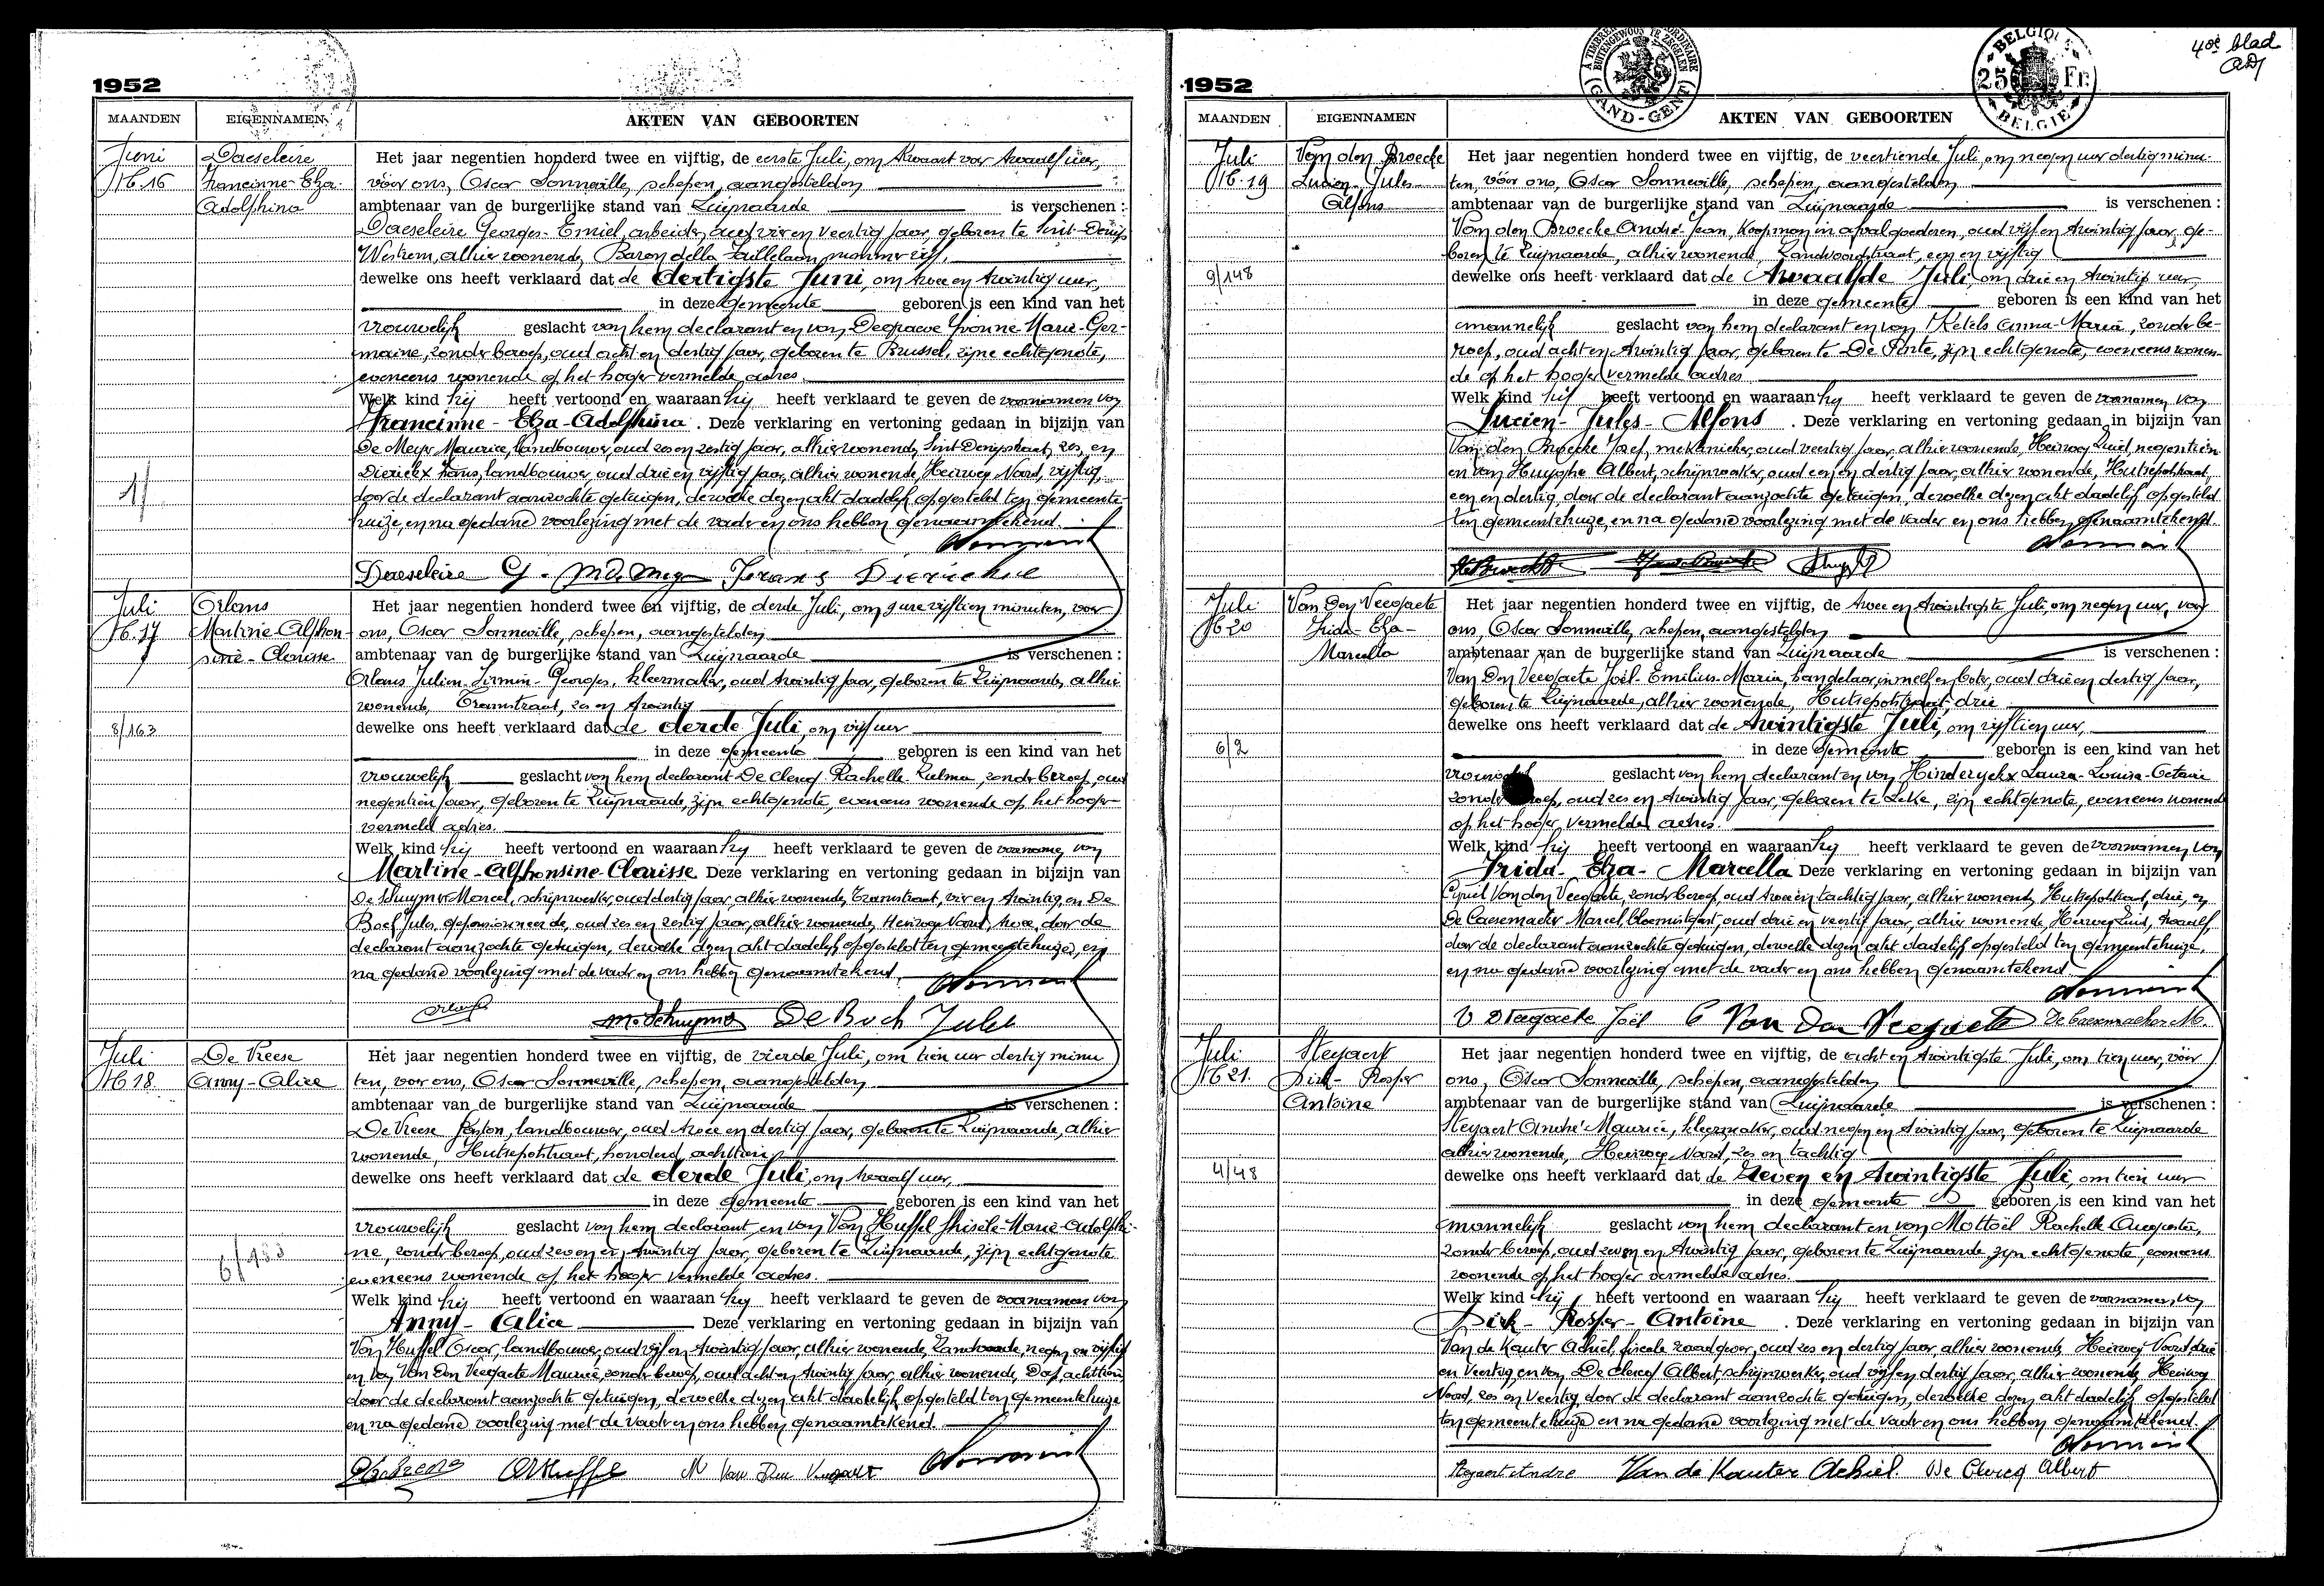 1952
MAANDEN EIGENNAMEN AKTEN VAN GEBOORTEN
Juni
No. 16
Daeseleire
Francinne-Elza-
Adolphina
Het jaar negentien honderd twee en vijftig, de eerste Juli, om kwaart vor twaalf uur,
vóór ons, Oscar Sonneville, schepen, aangestelden
ambtenaar van de burgerlijke stand van Zwijnaarde is verschenen :
Daeseleire Georges-Emiel, arbeider, oud vier en veertig jaar, geboren te Sint-Denijs
Westrem, alhier wonende, Baron della Faillelaan, nummer vijf,
dewelke ons heeft verklaard dat de dertigste Juni, om twee en twintig uur,
in deze gemeente geboren is een kind van het
vrouwelijk geslacht van hem declarant en van Degraeve Yvonne-Marie-Ger-
maine, zonder beroep, oud acht en dertig jaar, geboren te Brussel, zijne echtgenote,
eveneens wonende op het hoger vermelde adres.
Welk kind hij heeft vertoond en waaraan hij heeft verklaard te geven de voornamen van
Francinne-Elza-Adolphina. Deze verklaring en vertoning gedaan in bijzijn van
De Meyr Maurice, landbouwer, oud zes en zestig jaar, alhier wonende, Sint-Denijsstraat, zes, en
Dierickx Frans, landbouwer, oud drie en vijftig jaar, alhier wonende, Heirweg Noord, vijftig,
door de declarant aanzochte getuigen, dewelke dezen akt dadelijk opgesteld ten gemeente-
huize, en na gedane voorlezing met de vader en ons hebben genaamtekend.
Daeseleire G. M De Meyr Frans Dierickx
1/
Juli
No. 17
Orlans
Martine-Alphon-
sine-Clarisse
Het jaar negentien honderd twee en vijftig, de derde Juli, om 9 ure vijftien minuten, voor
ons, Oscar Sonneville, schepen, aangestelden
ambtenaar van de burgerlijke stand van Zwijnaarde is verschenen :
Orlans Julien-Firmin-Georges, kleermaker, oud twintig jaar, geboren te Zwijnaarde, alhier
wonende, Tramstraat, zes en twintig
dewelke ons heeft verklaard dat de derde Juli, om vijf uur
in deze gemeente geboren is een kind van het
vrouwelijk geslacht van hem declarant De Clercq Rachelle-Zulma, zonder beroep, oud
negentien jaar, geboren te Zwijnaarde, zijn echtgenote, eveneens wonende op het hoger
vermeld adres.
Welk kind hij heeft vertoond en waaraan hij heeft verklaard te geven de voornamen van
Martine-Alphonsine-Clarisse. Deze verklaring en vertoning gedaan in bijzijn van
De Schuymer Marcel, schrijnwerker, oud dertig jaar, alhier wonende, Tramstraat, vier en twintig, en De
Boch Jules, gepensionneerde, oud zes en zestig jaar, alhier wonende, Heirweg Noord, twee, door de
declarant aanzochte getuigen, dewelke dezen akt dadelijk opgesteld ten gemeentehuize, en
na gedane voorlezing met de vader en ons hebben genaamtekend.
De Boch Jules
8/163
Juli
No. 18.
De Reese
Anny-Alice
Het jaar negentien honderd twee en vijftig, de vierde Juli, om tien uur dertig minu
ten, voor ons, Oscar Sonneville, schepen, aangestelden
ambtenaar van de burgerlijke stand van Zwijnaarde is verschenen :
De Reese Gaston, landbouwer, oud twee en dertig jaar, geboren te Zwijnaarde, alhier
wonende, Hutsepotstraat, honderd achttien
dewelke ons heeft verklaard dat de derde Juli, om twaalf uur,
in deze gemeente geboren is een kind van het
vrouwelijk geslacht van hem declarant en van Van Huffel Ghisele-Marie-Adolphi-
ne, zonder beroep, oud zeven en twintig jaar, geboren te Zwijnaarde, zijn echtgenote
eveneens wonende op het hoger vermelde adres.
Welk kind hij heeft vertoond en waaraan hij heeft verklaard te geven de voornamen van
Anny-Alice Deze verklaring en vertoning gedaan in bijzijn van
Van Huffel Oscar, landbouwer, oud vijf en twintig jaar, alhier wonende, negen en vijftig
en van Van Den Veegaete Maurice, zonder beroep, oud acht en twintig jaar, alhier wonende, Dorp, achttien
door de declarant aanzochte getuigen, dewelke dezen akt dadelijk opgesteld ten gemeentehuize
en na gedane voorlezing met de vader en ons hebben genaamtekend.
M Van Den Veegaete
6/133
1952
40e blad
BELGIQUE 25 Fr. BELGIE
GAND-GENT
MAANDEN EIGENNAMEN AKTEN VAN GEBOORTEN
Juli
No. 19
Van den Broecke
Lucien-Jules-
Alfons
Het jaar negentien honderd twee en vijftig, de veertiende Juli, om negen uur dertig minu-
ten, vóór ons, Oscar Sonneville, schepen, aangestelden
ambtenaar van de burgerlijke stand van Zwijnaarde is verschenen :
Van den Broecke André-Jean, koopman in afvalgoederen, oud vijf en twintig jaar, ge-
boren te Zwijnaarde, alhier wonende, een en vijftig
dewelke ons heeft verklaard dat de twaalfde Juli, om drie en twintig uur,
in deze gemeente geboren is een kind van het
mannelijk geslacht van hem declarant en van Ketels Anna-Maria, zonder be-
roep, oud acht en twintig jaar, geboren te De Pinte, zijn echtgenote, eveneens wonen-
de op het hoger vermelde adres
Welk kind hij heeft vertoond en waaraan hij heeft verklaard te geven de voornamen van
Lucien-Jules-Alfons. Deze verklaring en vertoning gedaan in bijzijn van
Van den Broecke Jozef, mekanieker, oud veertig jaar, alhier wonende, Heirweg Zuid, negentien
en van Huyghe Albert, schrijnwerker, oud een en dertig jaar, alhier wonende, Hutsepotstraat
een en dertig, door de declarant aanzochte getuigen, dewelke dezen akt dadelijk opgesteld
ten gemeentehuize, en na gedane voorlezing met de vader en ons hebben genaamtekend.
9/148
Juli
No 20
Van Den Veegaete
Frida-Elza-
Marcella
Het jaar negentien honderd twee en vijftig, de twee en twintigste Juli om negen uur, voor
ons, Oscar Sonneville, schepen, aangestelden
ambtenaar van de burgerlijke stand van Zwijnaarde is verschenen :
Van Den Veegaete Joël-Emilius-Maria, handelaar in melk en boter, oud drie en dertig jaar,
geboren te Zwijnaarde, alhier wonende, Hutsepotstraat drie
dewelke ons heeft verklaard dat de twintigste Juli, om vijftien uur,
in deze gemeente geboren is een kind van het
vrouwelijk geslacht van hem declarant en van Hinderyckx Laura-Louisa-Octavie
zonder beroep, oud zes en twintig jaar, geboren te Leke, zijn echtgenote, eveneens wonende
op het hoger vermelde adres.
Welk kind hij heeft vertoond en waaraan hij heeft verklaard te geven de voornamen van
Frida-Elza-Marcella Deze verklaring en vertoning gedaan in bijzijn van
Cyriel Van den Veegaete, zonder beroep, oud twee en tachtig jaar, alhier wonende, Hutsepotstraat, drie, en
De Caesemaeker Marcel, bloemist, oud drie en veertig jaar, alhier wonende, Heirweg Zuid, twaalf,
door de declarant aanzochte getuigen, dewelke dezen akt dadelijk opgesteld ten gemeentehuize,
en na gedane voorlezing met de vader en ons hebben genaamtekend
V D Veegaete Joël C Van Den Veegaete De Caesemaeker M.
6/2
Juli
No 21.
Steyaert
Dirk-Rosper
Antoine
Het jaar negentien honderd twee en vijftig, de acht en twintigste Juli, om tien uur, vóór
ons, Oscar Sonneville, schepen, aangestelden
ambtenaar van de burgerlijke stand van Zwijnaarde is verschenen :
Steyaert André Maurice, kleermaker, oud negen en twintig jaar, geboren te Zwijnaarde
alhier wonende, Heirweg Noord, zes en tachtig
dewelke ons heeft verklaard dat de zeven en twintigste Juli, om tien uur
in deze gemeente geboren is een kind van het
mannelijk geslacht van hem declarant en van Mottoël Rachelle Augusta,
zonder beroep, oud zeven en twintig jaar, geboren te Zwijnaarde, zijn echtgenote, eveneens
wonende op het hoger vermelde adres.
Welk kind hij heeft vertoond en waaraan hij heeft verklaard te geven de voornamen van
Dirk-Rosper-Antoine. Deze verklaring en vertoning gedaan in bijzijn van
Van de Kauter Achiel, fiscale raadgever, oud zes en dertig jaar, alhier wonende Heirweg Noord drie
en veertig en van De Clercq Albert, schrijnwerker, oud vijf en dertig jaar, alhier wonende, Heirweg
Noord, zes en veertig door de declarant aanzochte getuigen, dewelke dezen akt dadelijk opgesteld
ten gemeentehuize en na gedane voorlezing met de vader en ons hebben genaamtekend.
Steyaert Andre Van de Kauter Achiel. De Clercq Albert
4/48